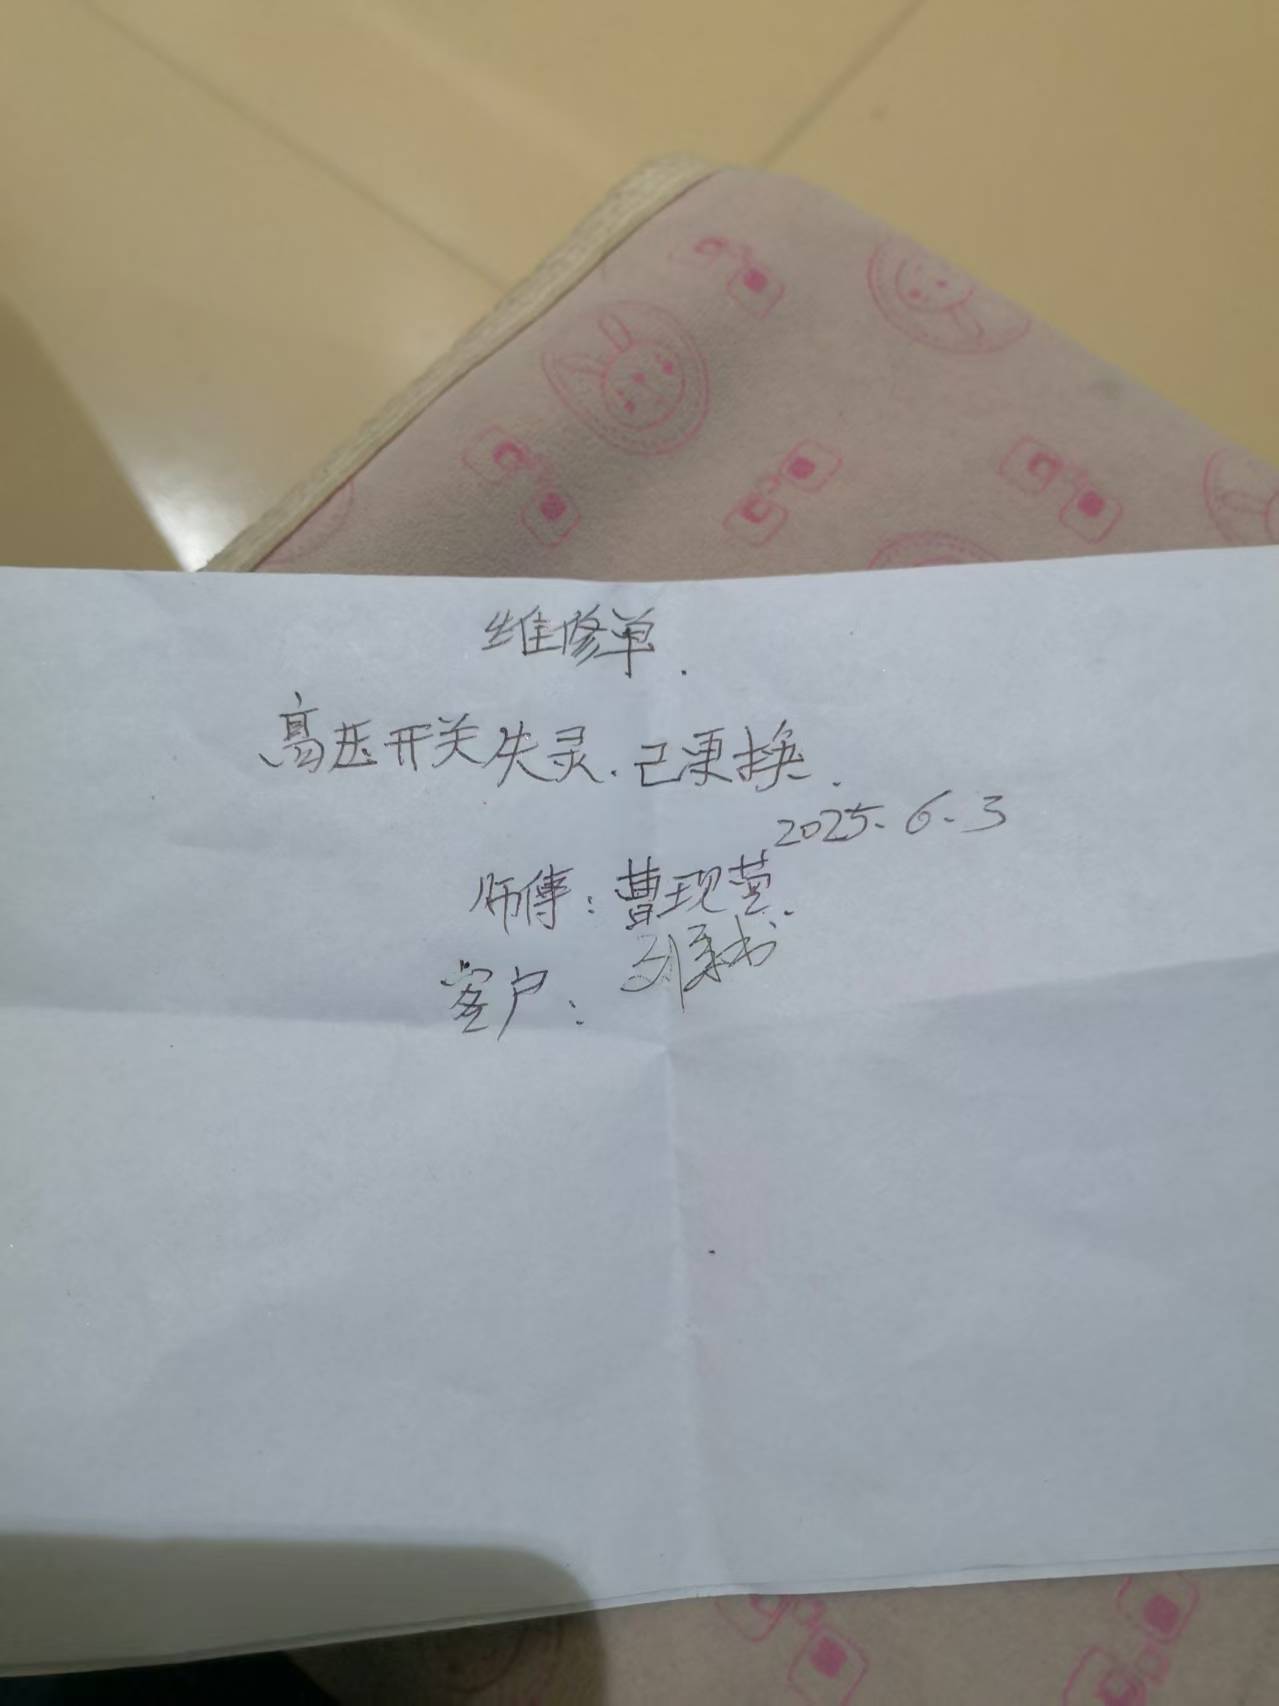 维修单.
高压开关失灵.已更换.
2025.6.3
师傅:曹现营.
客户: